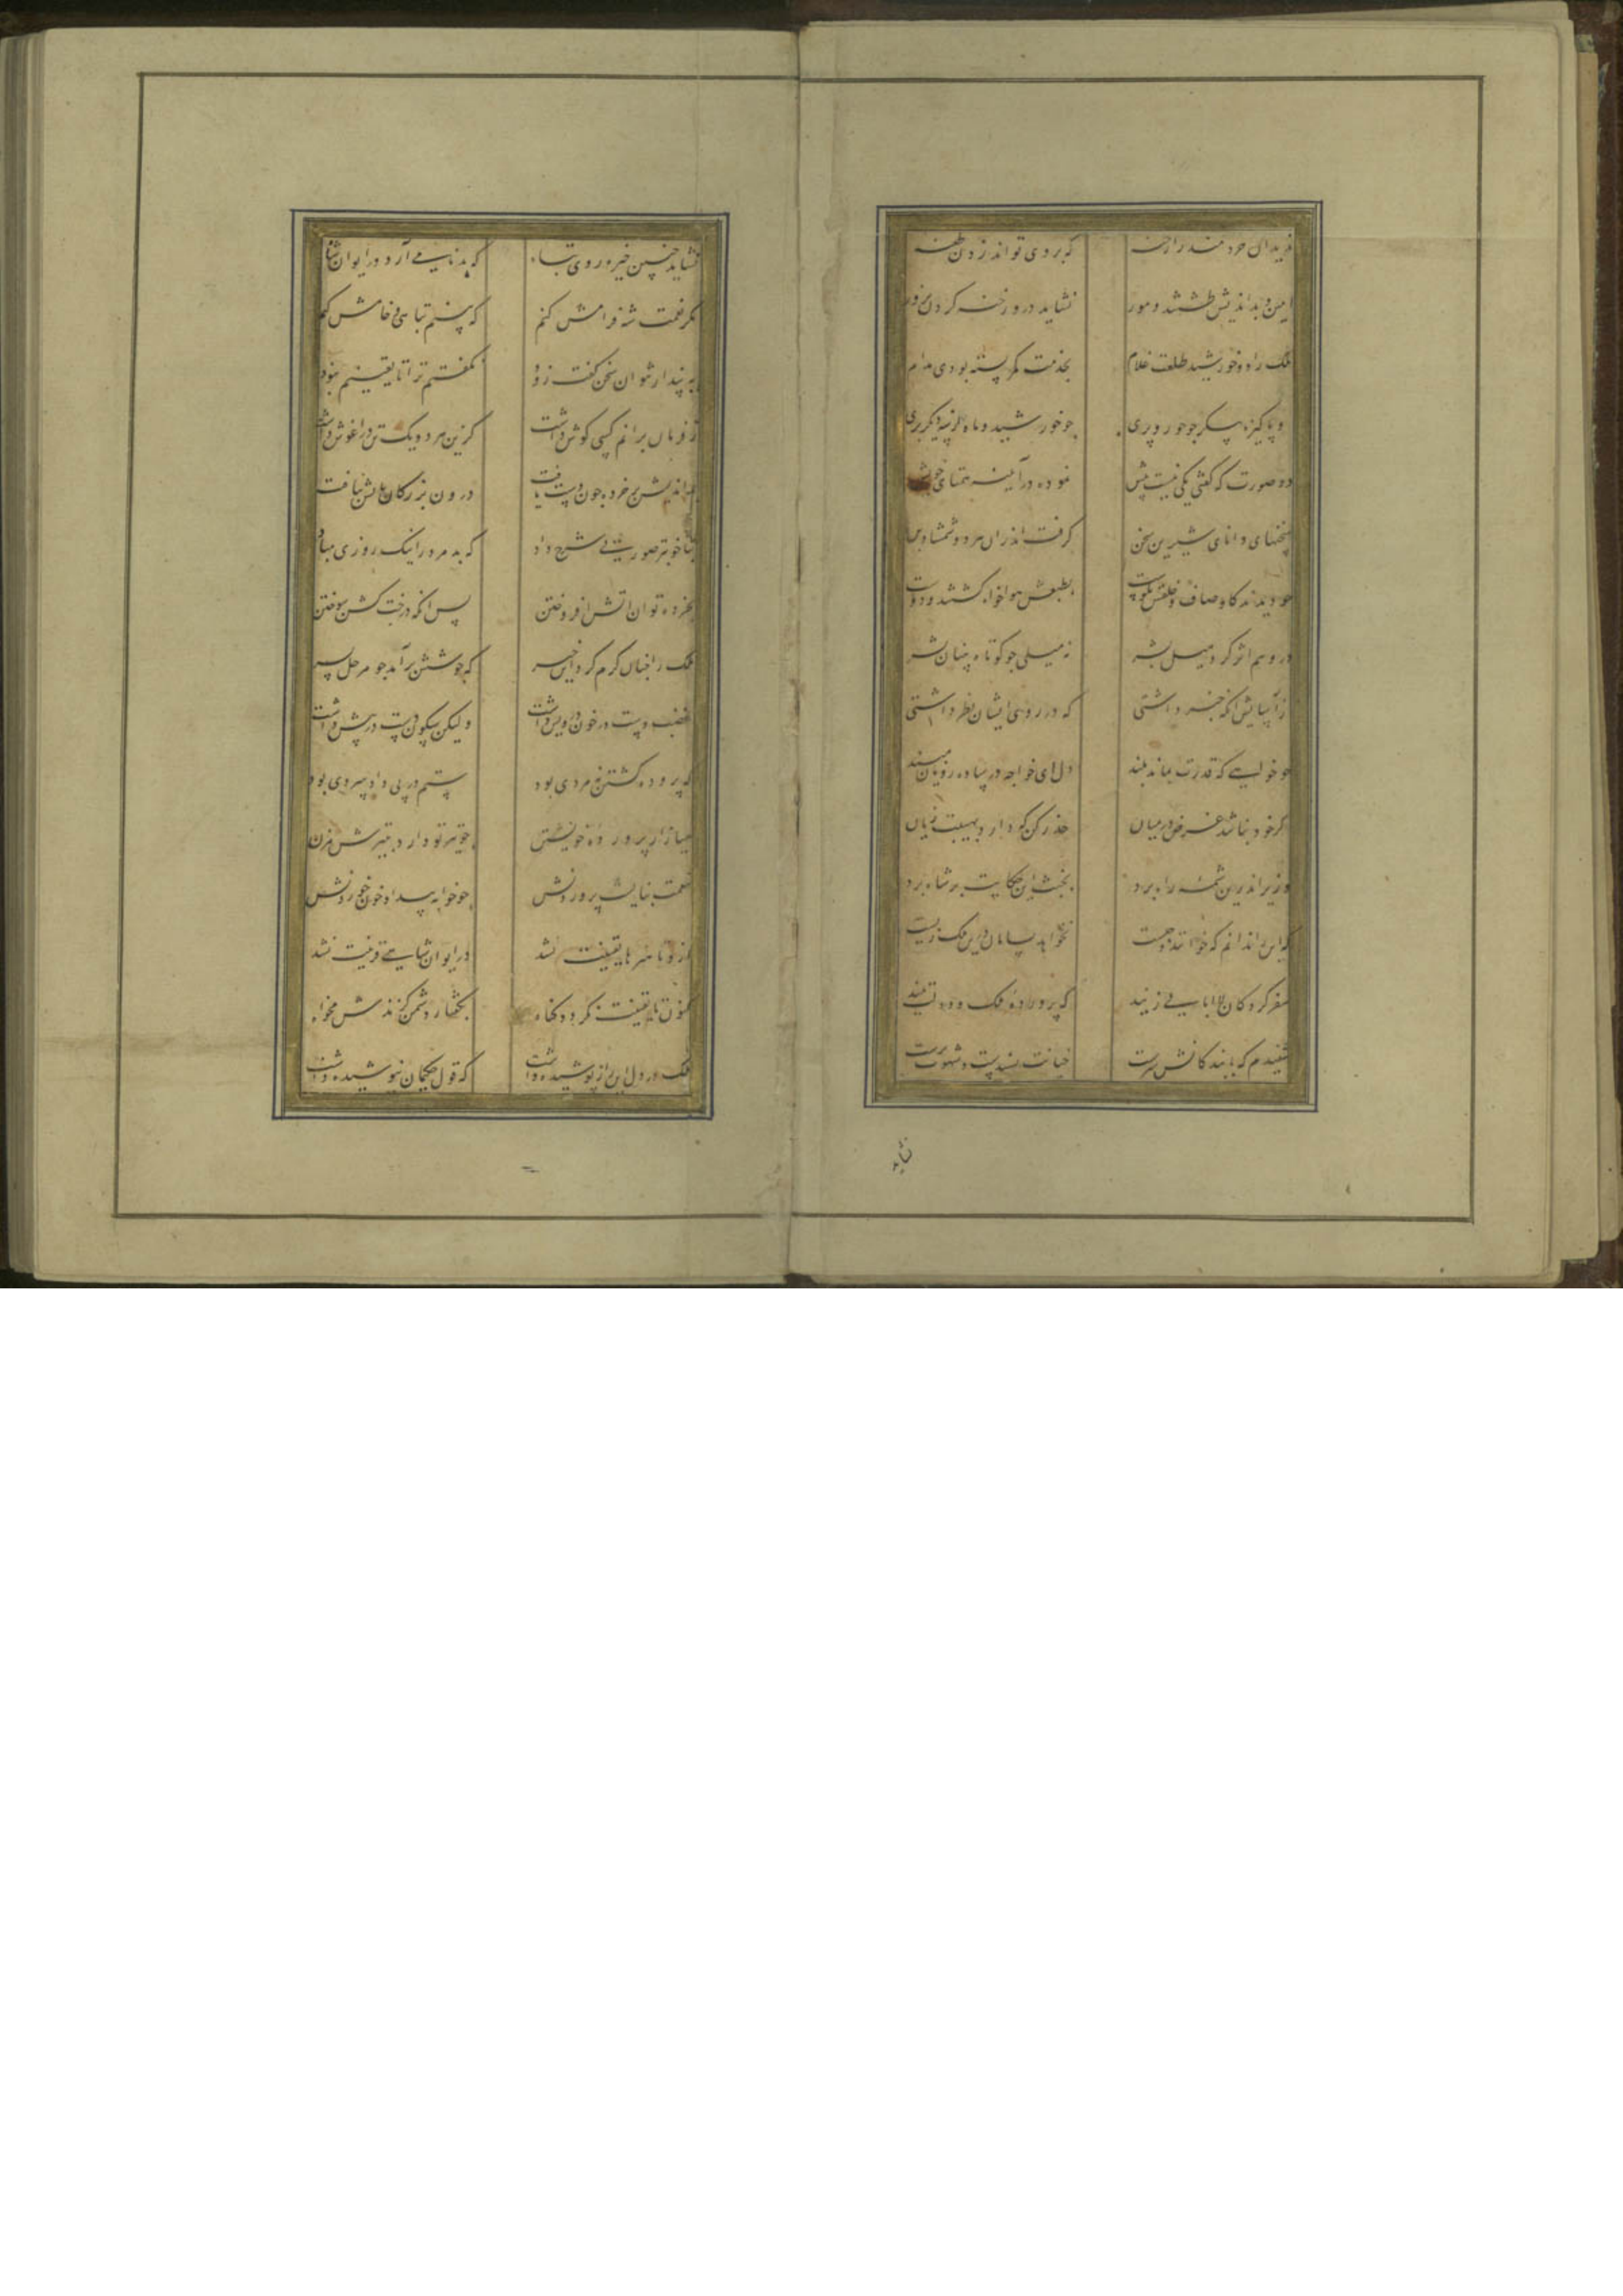 ندید آن خردمند را رخنه که بر وی تواند زدن طعنه
امین و بداندیش طشتند و مور نشاید درو رخنه کردن بزور
ملک را دو خورشید طلعت غلام بخدمت کمر بسته بودی مدام
دو پاکیزه پیکر جو حور و پری جو خورشید و ماه از سه دیکر بری
دو صورت که کفتی یکی نیست بیش نموده در آینه همتای خویش
سخنهای دانای شیرین سخن کرفت اندران هر دو شمشاد بن
جو دیدند کاوصاف و خلقش نکوست بطبعش هواخواه کشتند و دوست
درو هم اثر کرد میل بشر نه میلی جو کوتاه بینان بشر
از آسایش آنکه خبر داشتی که در روی ایشان نظر داشتی
جو خواهی که قدرت بماند بلند دل ای خواجه در ساده رویان مبند
وکر خود نباشد غرض در میان حذر کن که دارد بهیبت زیان
وزیر اندرین شمه راه برد بخبث این حکایت بر شاه برد
که این را ندانم که خوانند و کیست نخواهد بسامان درین ملک زیست
سفرکردکان لاابالی زیند که پرورده ملک و دولت نیند
شنیدم که با بندکانش سرست خیانت پسندست و شهوت پرست
نشاید
نشاید چنین خیره روی تباه که بدنامی آرد در ایوان شاه
مکر نعمت شه فرامش کنم که بینم تباهی و خامش کنم
به پندار نتوان سخن کفت زود نکفتم ترا تا یقینم نبود
ز فرمان برانم کسی کوش داشت کزین هر دو یک تن در آغوش داشت
بداندیش بر خرده جون دست یافت درون بزرکان بآتش بتافت
بناخوبتر صورتی شرح داد که بد مرد را نیک روزی مباد
بخرده توان آتش افروختن پس آنکه درخت کشن سوختن
ملک را جنان کرم کرد این خبر که جوشش برآمد جو مرجل بسر
غضب دست در خون درویش داشت ولیکن سکون دست در پیش داشت
که پرورده کشتن نه مردی بود ستم در پی داد سردی بود
میازار پرورده خویشتن جو تیر تو دارد بتیرش مزن
بنعمت نبایست پروردنش جو خواهی به بیداد خون خوردنش
ازو تا هنرها یقینت نشد در ایوان شاهی قرینت نشد
کنون تا یقینت نکردد کناه بکفتار دشمن کزندش مخواه
ملک در دل این راز پوشیده داشت که قول حکیمان نیوشیده داشت